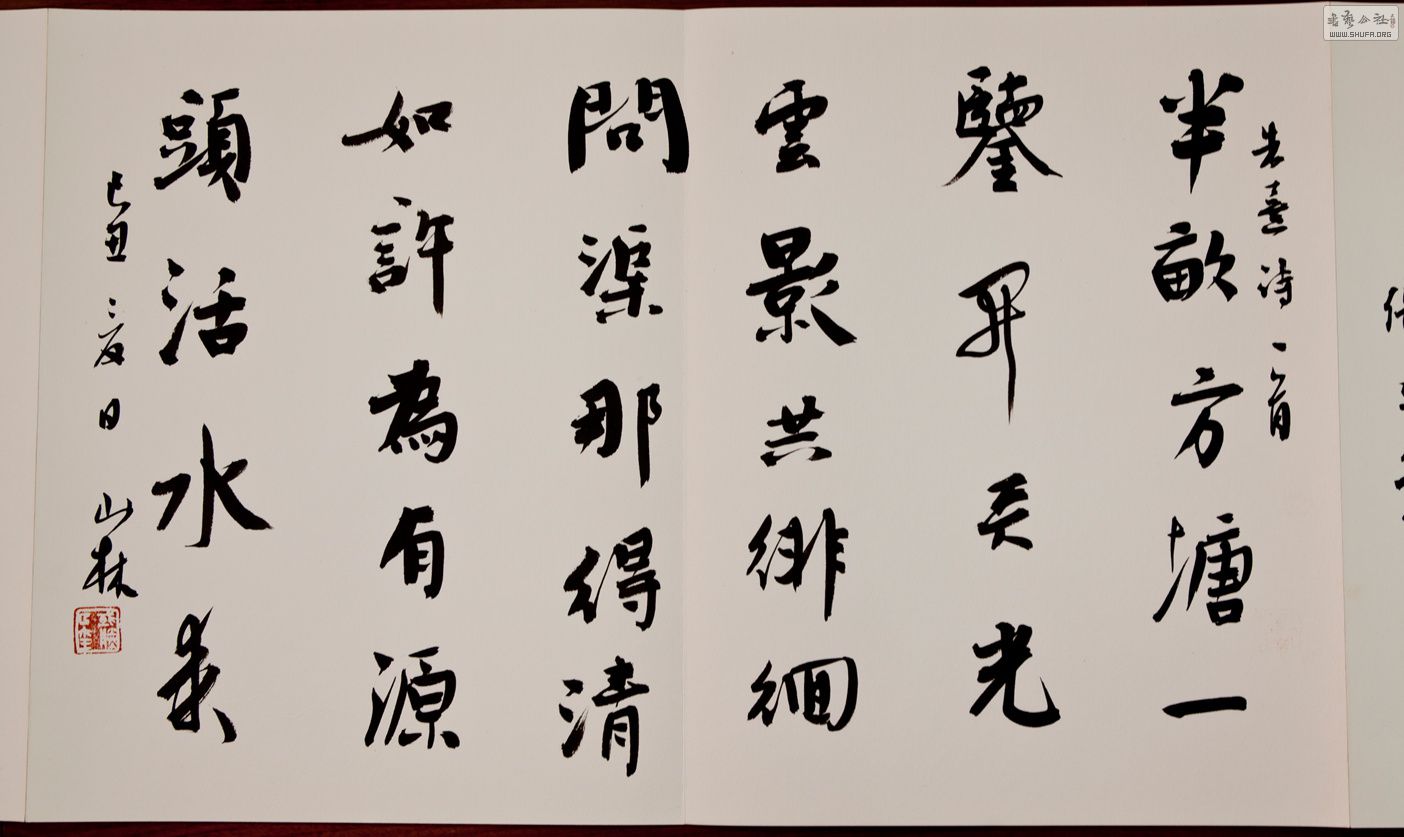 朱熹诗一首
半畝方塘一
鑒開天光
雲影共徘徊
問渠那得清
如許為有源
頭活水来
己丑夏日 山林
書藝公社
WWW.SHUFA.ORG